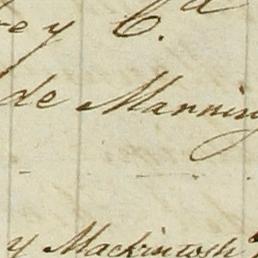 ey C.
de Manning
y Mackintosh